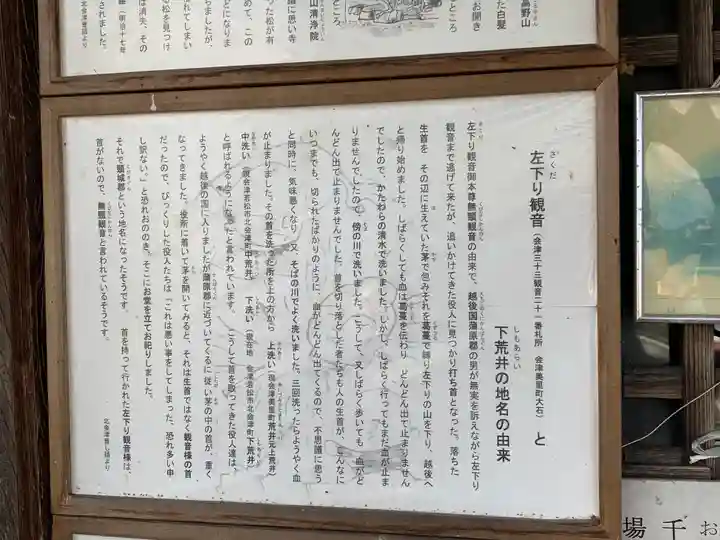 左下り観音（会津三十三観音二十一番札所　会津美里町大石）　と
下荒井の地名の由来
左下り観音御本尊無頸観音の由来で、越後国蒲原郡の男が無実を訴えながら左下り
観音まで逃げて来たが、追いかけてきた役人に見つかり打ち首となった。落ちた
生首を　その辺に生えていた茅で包みそれを葛蔓で縛り左下りの山を下り、越後へ
と帰り始めました。しばらくしても血は葛蔓を伝わり　どんどん出て止まりません
でしたので、かたわらの清水で洗いました。しかし、しばらく行ってもまだ血が止ま
りませんでしたので、傍の川で洗いました。こうして、又しばらく歩いても、血がど
んどん出て止まりませんでした。首を切り落とした者たちも人の生首が、こんなに
いつまでも、切られたばかりのように、血がどんどん出てくるので、不思議に思う
と同時に、気味悪くなり、又、そばの川でよく洗いました。三回洗ったらようやく血
が止まりました。その首を洗った所を上の方から　上洗い（現会津美里町荒井元上荒井）
中洗い（現会津若松市北会津町中荒井）　下洗い（現在地　会津若松市北会津町下荒井）
と呼ばれるようになったと言われています。　こうして首を取ってきた役人達は、
ようやく越後の国に入りましたが蒲原郡に近づいてくるに従い茅の中の首が、重く
なってきました。役所に着いて茅を開いてみると、それは生首ではなく観音様の首
だったので、びっくりした役人たちは「これは悪い事をしてしまった、恐れ多い申
し訳ない。」と恐れおののき、そこにお堂を立てお祀りしました。
それで頸城郡という地名になったそうです。　首を持って行かれた左下り観音様は、
首がないので、無頸観音と言われているそうです。
北会津昔し話より、
高野山
お開き
ところ
た白髪
山清浄院
ところ、
に思い寺
た松が有
めて、この
どになりま
らましたが、
されてしまい
る松を見つけ
は消失、その
（明治十七年
されました。
本会津昔話より
お
千
場